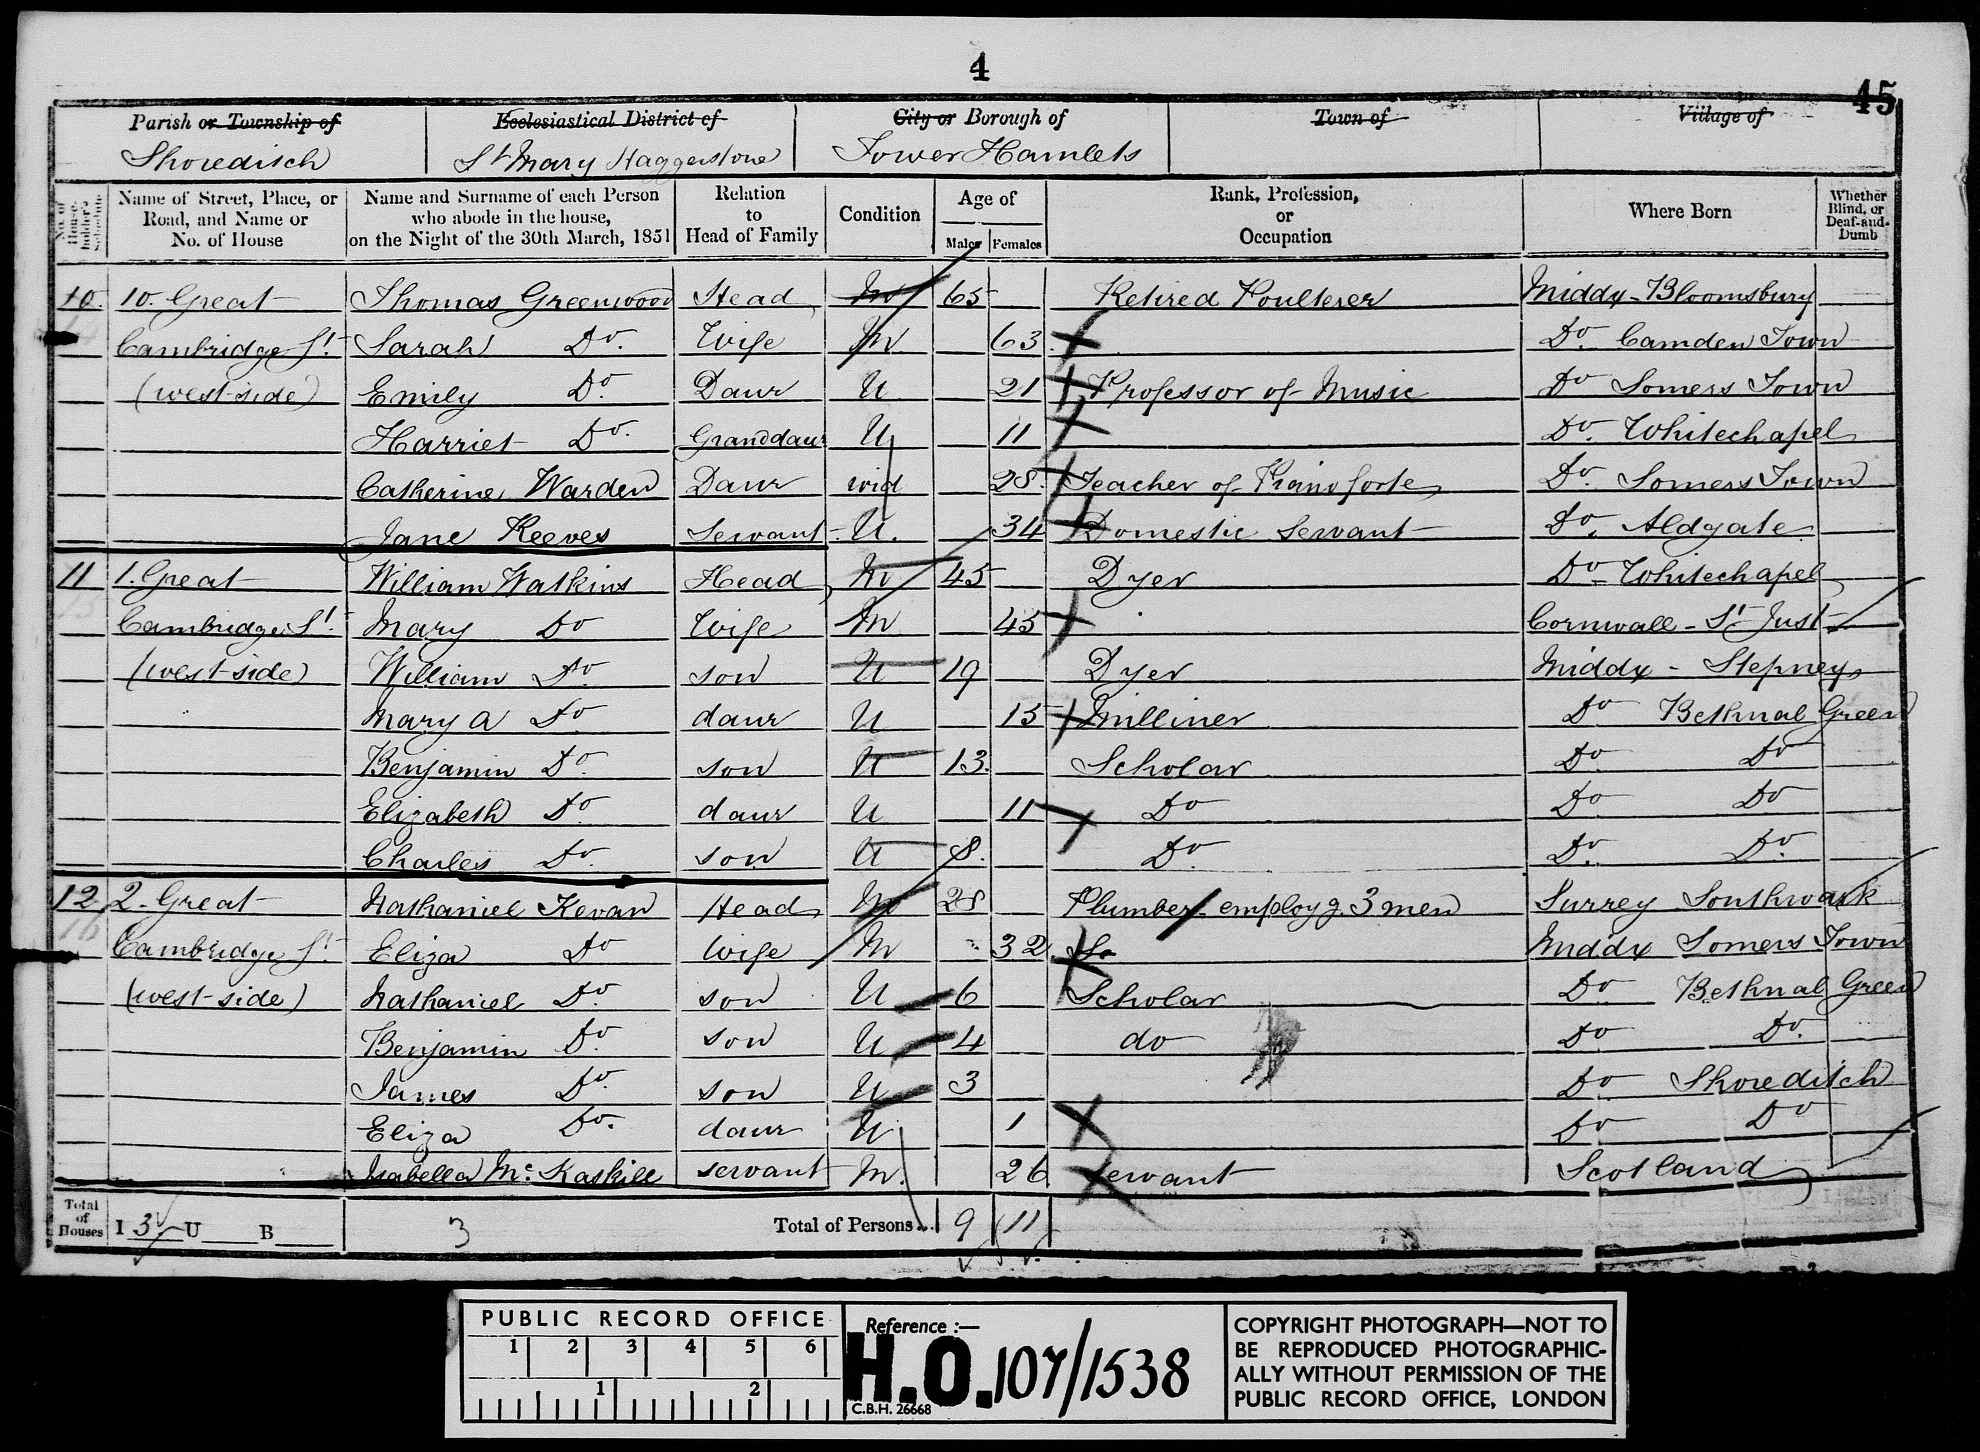 4
45
Parish or Township of
Shoreditch
Ecclesiastical District of
St Mary Haggerstone
City or Borough of
Tower Hamlets
Town of
Village of
No. of House-holder's Schedule
Name of Street, Place, or Road, and Name or No. of House
Name and Surname of each Person who abode in the house, on the Night of the 30th March, 1851
Relation to Head of Family
Condition
Age of
Males Females
Rank, Profession, or Occupation
Where Born
Whether Blind, or Deaf-and-Dumb
10. 10. Great Thomas Greenwood Head M 65 Retired Poulterer Middx - Bloomsbury
Cambridge St. Sarah Do. Wife M 63 Do. Camden Town
(west side) Emily Do. Daur U 21 Professor of Music Do Somers Town
Harriet Do. Granddaur U 11 Do. Whitechapel
Catherine Warden Daur wid 28. Teacher of Pianoforte Do. Somers Town
Jane Reeves Servant U. 34 Domestic Servant Do. Aldgate
11 1. Great William Watkins Head M 45 Dyer Do - Whitechapel
Cambridge St. Mary Do Wife M 45 Cornwall - St Just
(west side) William Do. son U 19 Dyer Middx - Stepney
Mary A Do daur U 15 Milliner Do Bethnal Green
Benjamin Do. son U 13. Scholar Do Do
Elizabeth Do daur U 11 Do Do Do
Charles Do. son U 8. Do. Do. Do.
12 2. Great Nathaniel Kevan Head M 28 Plumber - employg 3 men Surrey Southwark
16 Cambridge St. Eliza Do Wife M 32 Middx Somers Town
(west side) Nathaniel Do. son U 6 Scholar Do Bethnal Green
Benjamin Do. son U 4 do Do Do.
James Do. son U 3 Do Shoreditch
Eliza Do. daur U 1 Do Do
Isabella Mc Kaskill servant M. 26 Servant Scotland
Total of Houses I 3 U B 3 Total of Persons... 9 11
PUBLIC RECORD OFFICE
1 2 3 4 5 6
1 2
Reference :—
H.O. 107/1538
C.B.H. 26668
COPYRIGHT PHOTOGRAPH—NOT TO
BE REPRODUCED PHOTOGRAPHIC-
ALLY WITHOUT PERMISSION OF THE
PUBLIC RECORD OFFICE, LONDON